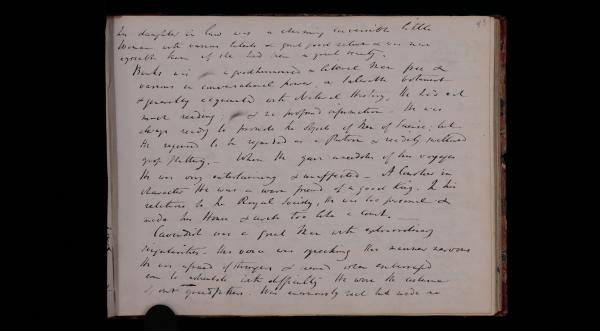 43
his daughter in law was a charming sensible little
Woman with various talents & great good nature & was more
agreeable than if she had been a great beauty.
Banks was a goodhumoured & liberal Man free &
various in conversational power, a tolerable botanist
& generally acquainted with Natural History. He had not
much reading; & no profound information. He was
always ready to promote the objects of Men of Science; but
He required to be regarded as a Patron & readily swallowed
gross flattery. – When He gave anecdotes of his voyages
He was very entertaining & unaffected. – A Courtier in
character He was a warm friend of a good King. In his
relations to the Royal Society, He was too personal & 
made his House a circle too like a court. –
Cavendish was a great Man with extraordinary
singularities. – His voice was squeaking his manner nervous
He was afraid of strangers & seemed when embarrassed
even to articulate with difficulty He wore the costume
of our grandfathers. Was enormously rich but made no